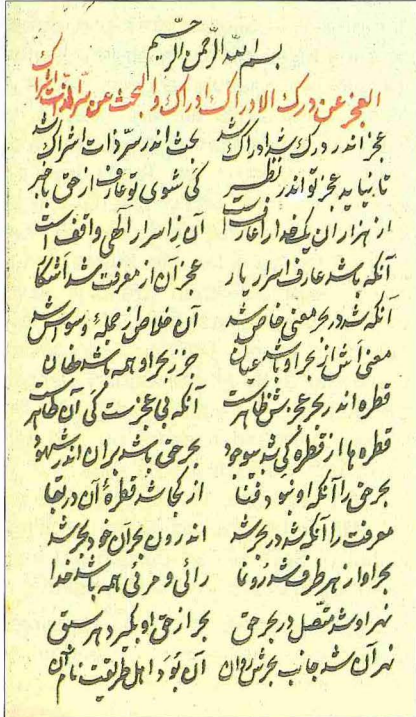 بسم الله الرحمن الرحيم
العجز عن درك الادراك ادراك والبحث عن سر الذات اشراك
عجز اندر درک شد ادراک شد بحث اندر سر ذات اشراک شد
تا نیاید عجز تو اندر نظر کی شوی تو عارف از حق باخبر
از هزاران یک خدا را عارفست آن ز اسرار الهی واقفست
آنکه باشد عارف اسرار یار عجز آن از معرفت شد آشکا
آنکه شد در بحر معنی خاص شد آن خلاص از جملهٔ وسواس شد
معنی اش از بحر او باشد عیان جزر بحر او همه باشد
قطره اندر بحر عجزش ظاهرست آنکه بی عجزست کی آن طاهرست
قطره ها از قطره کی شد موجود بحر حق باشد بران اندر شهود
بحر حق را آنکه او نبود فنا از کجا شد قطرهٔ آن در بقا
معرفت را آنکه شد در بحر شد اندرون بحر آن خود بحر شد
بحر او از هر طرف شد رونما رائی و مرئی همه باشد خدا
نهر او شد متصل در بحر حق بحر از حق او بگیرد هر سبق
نهر آن شد جانب بحرش روان آن بود اهل طریقت نام آن